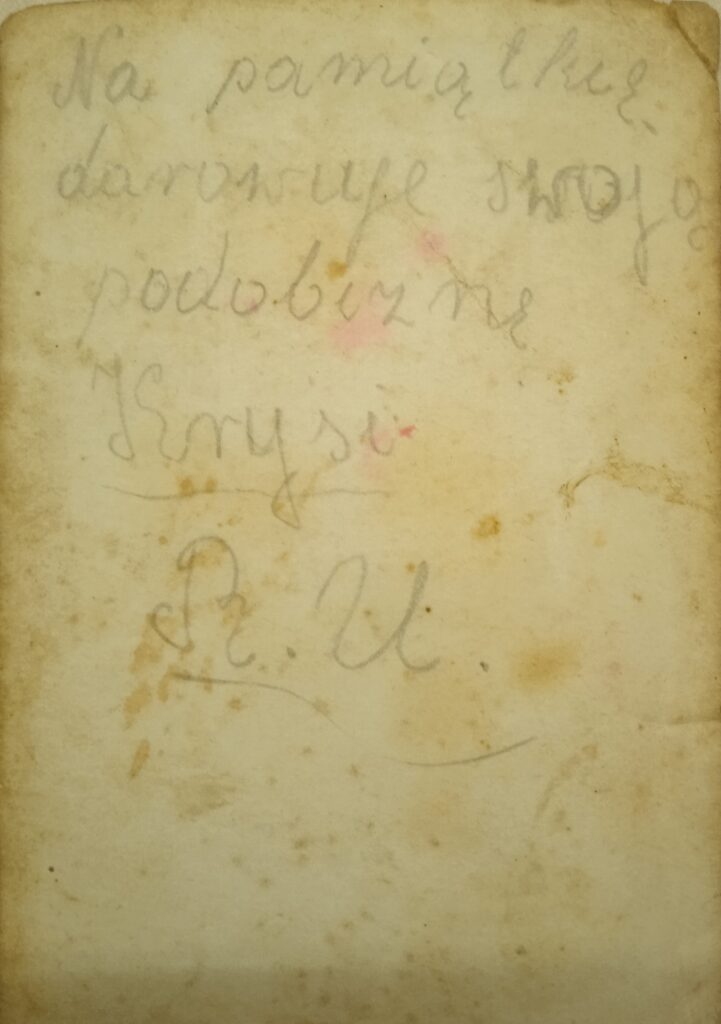 Na pamiątkię
darowuje swoją
podobiznę
Krysi
R. U.